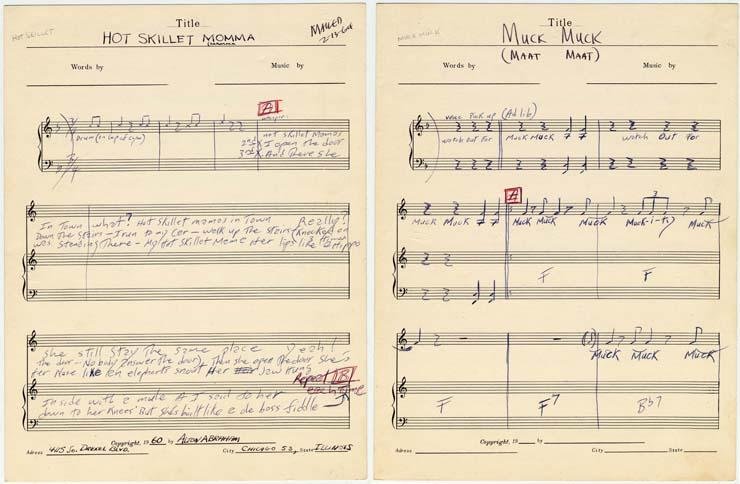 HOT SKILLET
Title
HOT SKILLET MOMMA
MAILED
Words by
Music by
A
Drum (on top of gym)
Hot Skillet Mamas
2nd X I open the door
3rd X And There She
In Town what? Hot Skillet mamas in Town Really!
Down The Stairs – I ran to my Car – walk up the Stairs Knocked on
was Standing There – My Hot Skillet Mama Her lips like a Hippo
She still Stay The same place Yeah!
The door – Nobody Answer the door), Then she open the door She's
Her Nose like en elephants snout Her Jaw Hung
Repeat B
each time
Inside with a mule A I said to her
down to her Knees' But She's built like a de boss fiddle
Copyright, 1960 by ALTON ABRAHAM
Adress 4115 So. DREXEL BLVD. City CHICAGO 53, State ILLINOIS
MUCK MUCK
Title
MUCK MUCK
(MAAT MAAT)
Words by
Music by
verse Pick up (Ad lib)
watch out For
Muck Muck
watch Out For
A
Muck Muck
Muck Muck
Muck
Muck-i-ty
Muck
F
F
Muck Muck
Muck
F
F7
Bb7
Copyright, 19 by
Adress City State